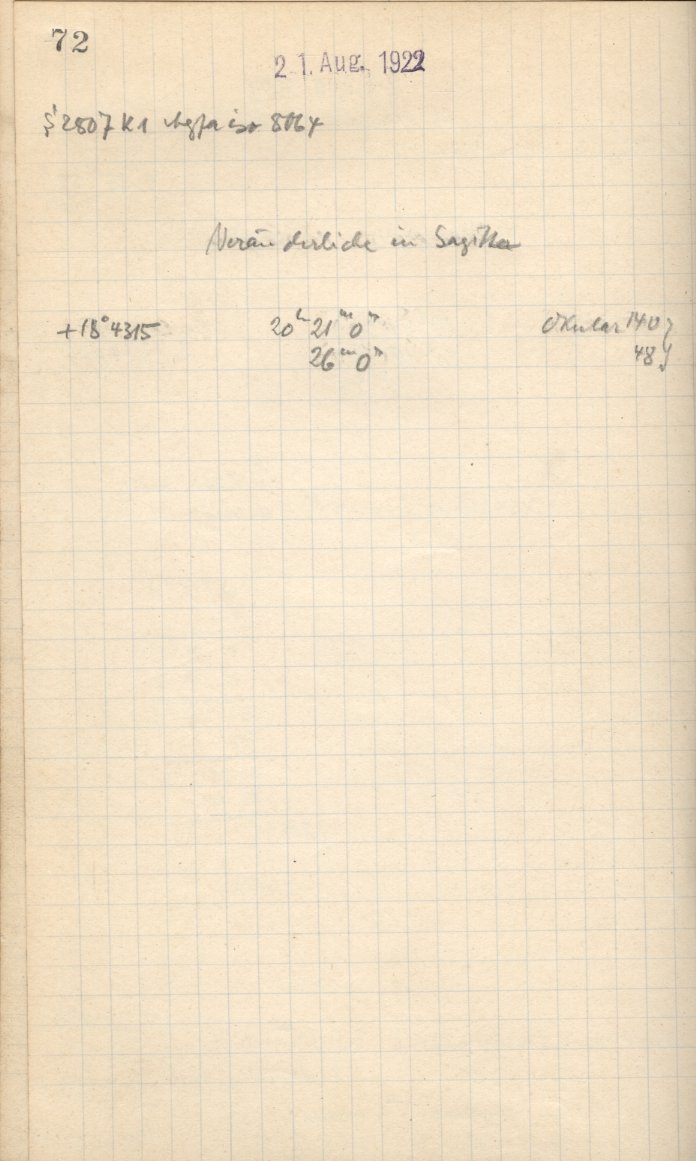 72
21. Aug. 1922
S 2807 K1 Agfa iso 8064
Veränderliche in Sagitta
+18° 4315 20h 21m 0s Okular 140
26m 0s 48